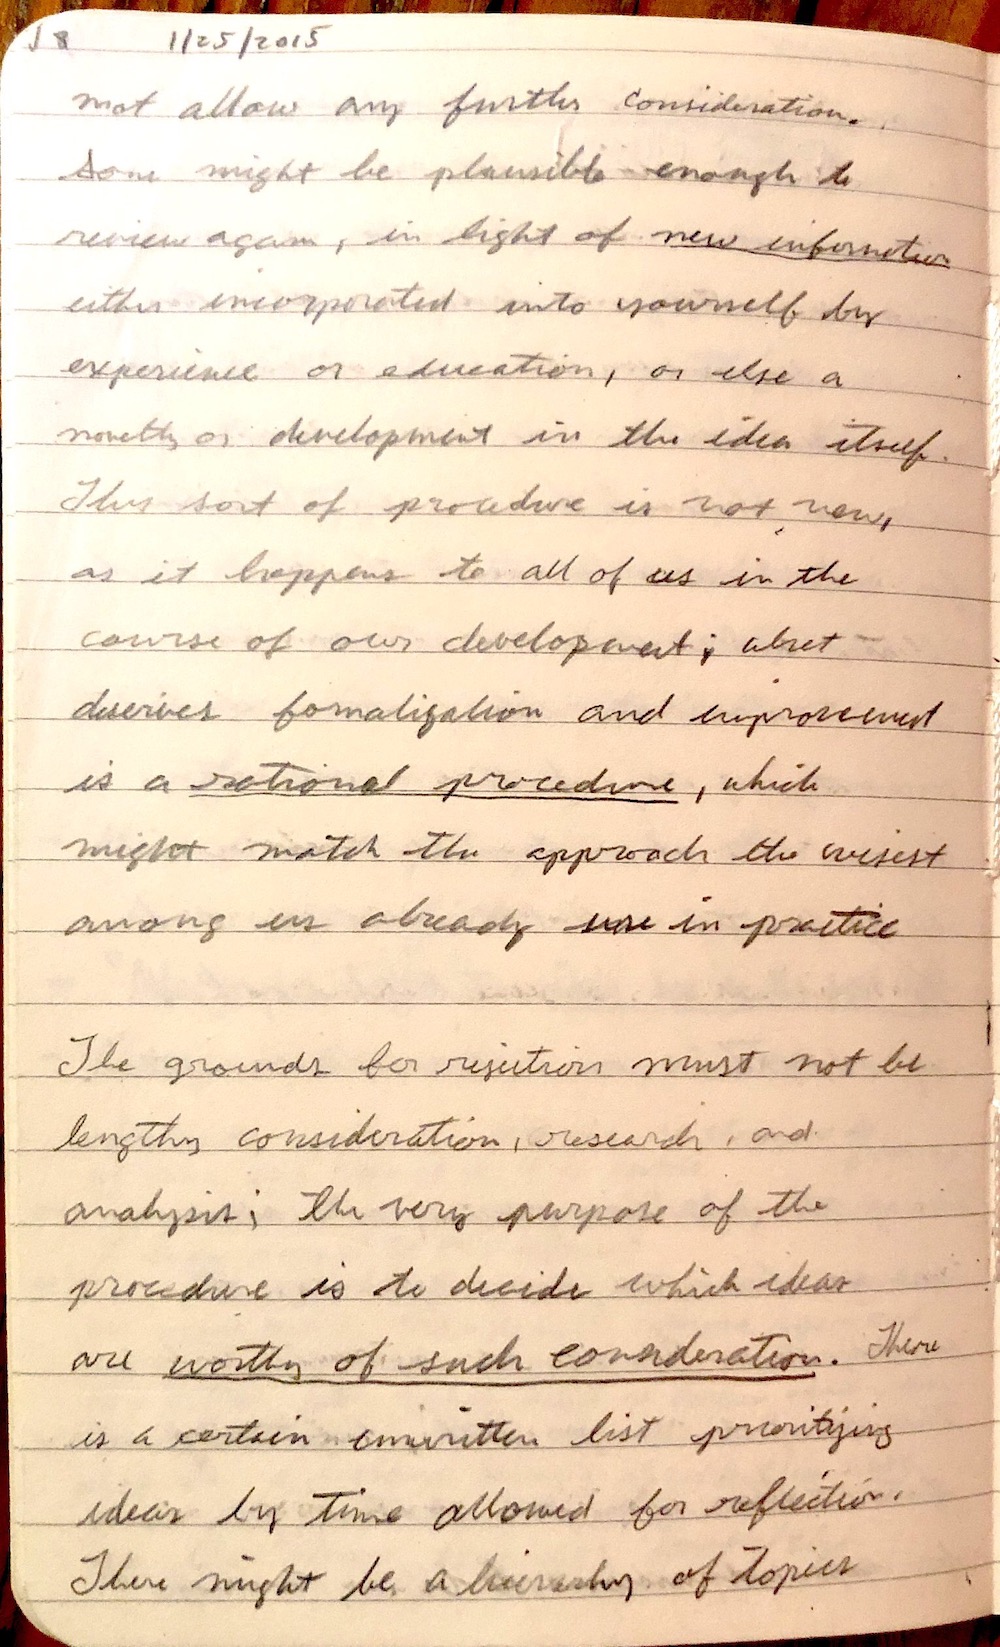 J 8 1/25/2015
not allow any further consideration.
Some might be plausible enough to
review again, in light of new information
either incorporated into yourself by
experience or education, or else a
novelty or development in the idea itself.
This sort of procedure is not new,
as it happens to all of us in the
course of our development; what
deserves formalization and improvement
is a rational procedure, which
might match the approach the wisest
among us already use in practice
The grounds for rejection must not be
lengthy consideration, research, and
analysis; the very purpose of the
procedure is to decide which ideas
are worthy of such consideration. There
is a certain unwritten list prioritizing
ideas by time allowed for reflection.
There might be a hierarchy of topics